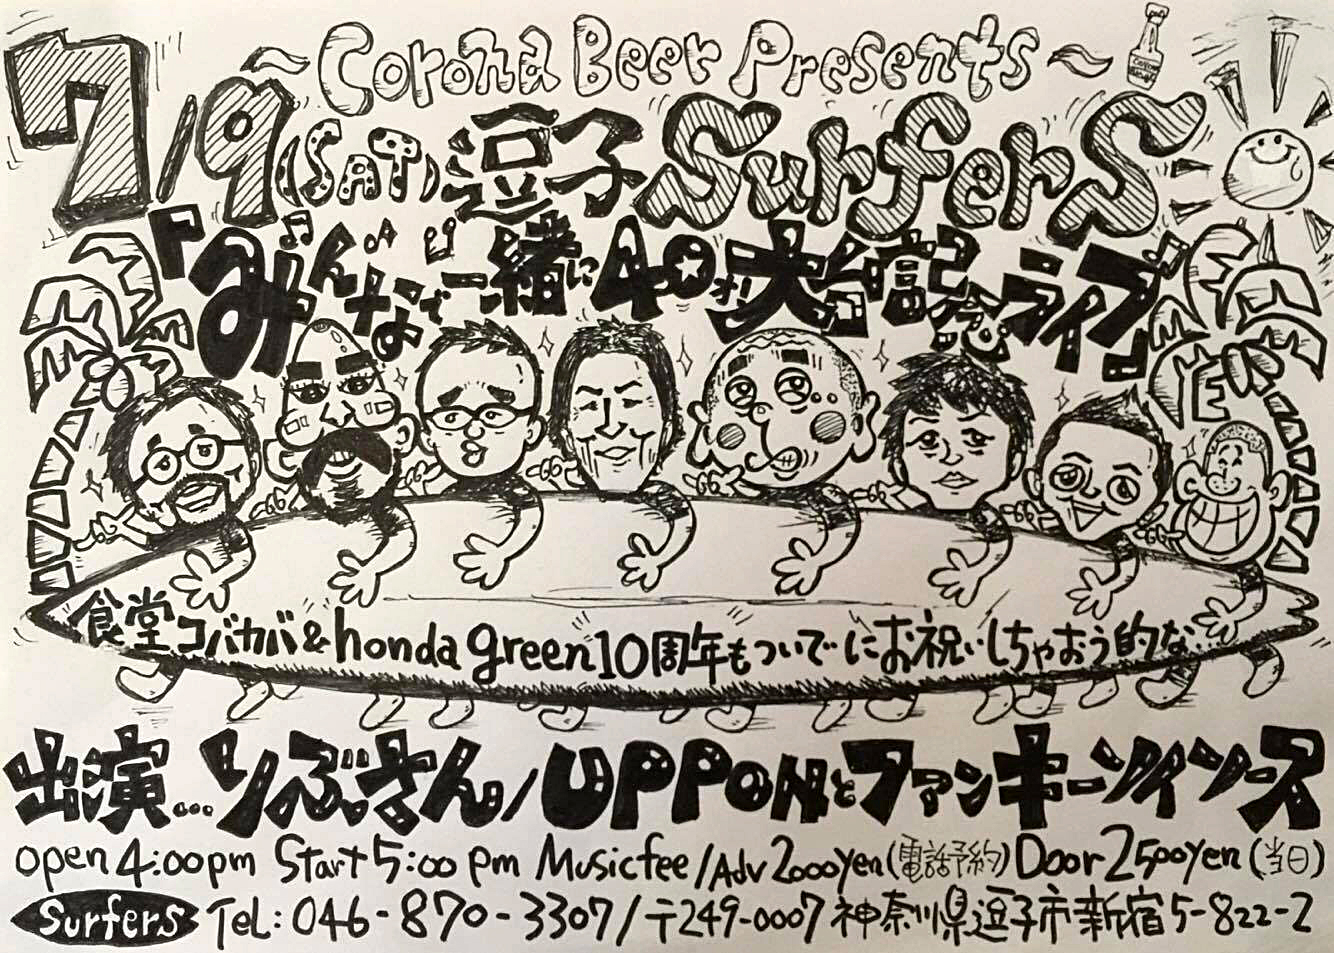 ~Corona Beer Presents~
7/9(SAT)逗子Surfers
『みんなで一緒に40才!大台記念ライブ』
食堂コバカバ&honda green10周年もついでにお祝いしちゃおう的な...
出演...りぶさん/UPPONとファンキーソイソース
open 4:00pm Start 5:00pm Musicfee/Adv 2000yen(電話予約) Door 2500yen(当日)
Surfers TEL:046-870-3307/〒249-0007 神奈川県逗子市新宿5-822-2